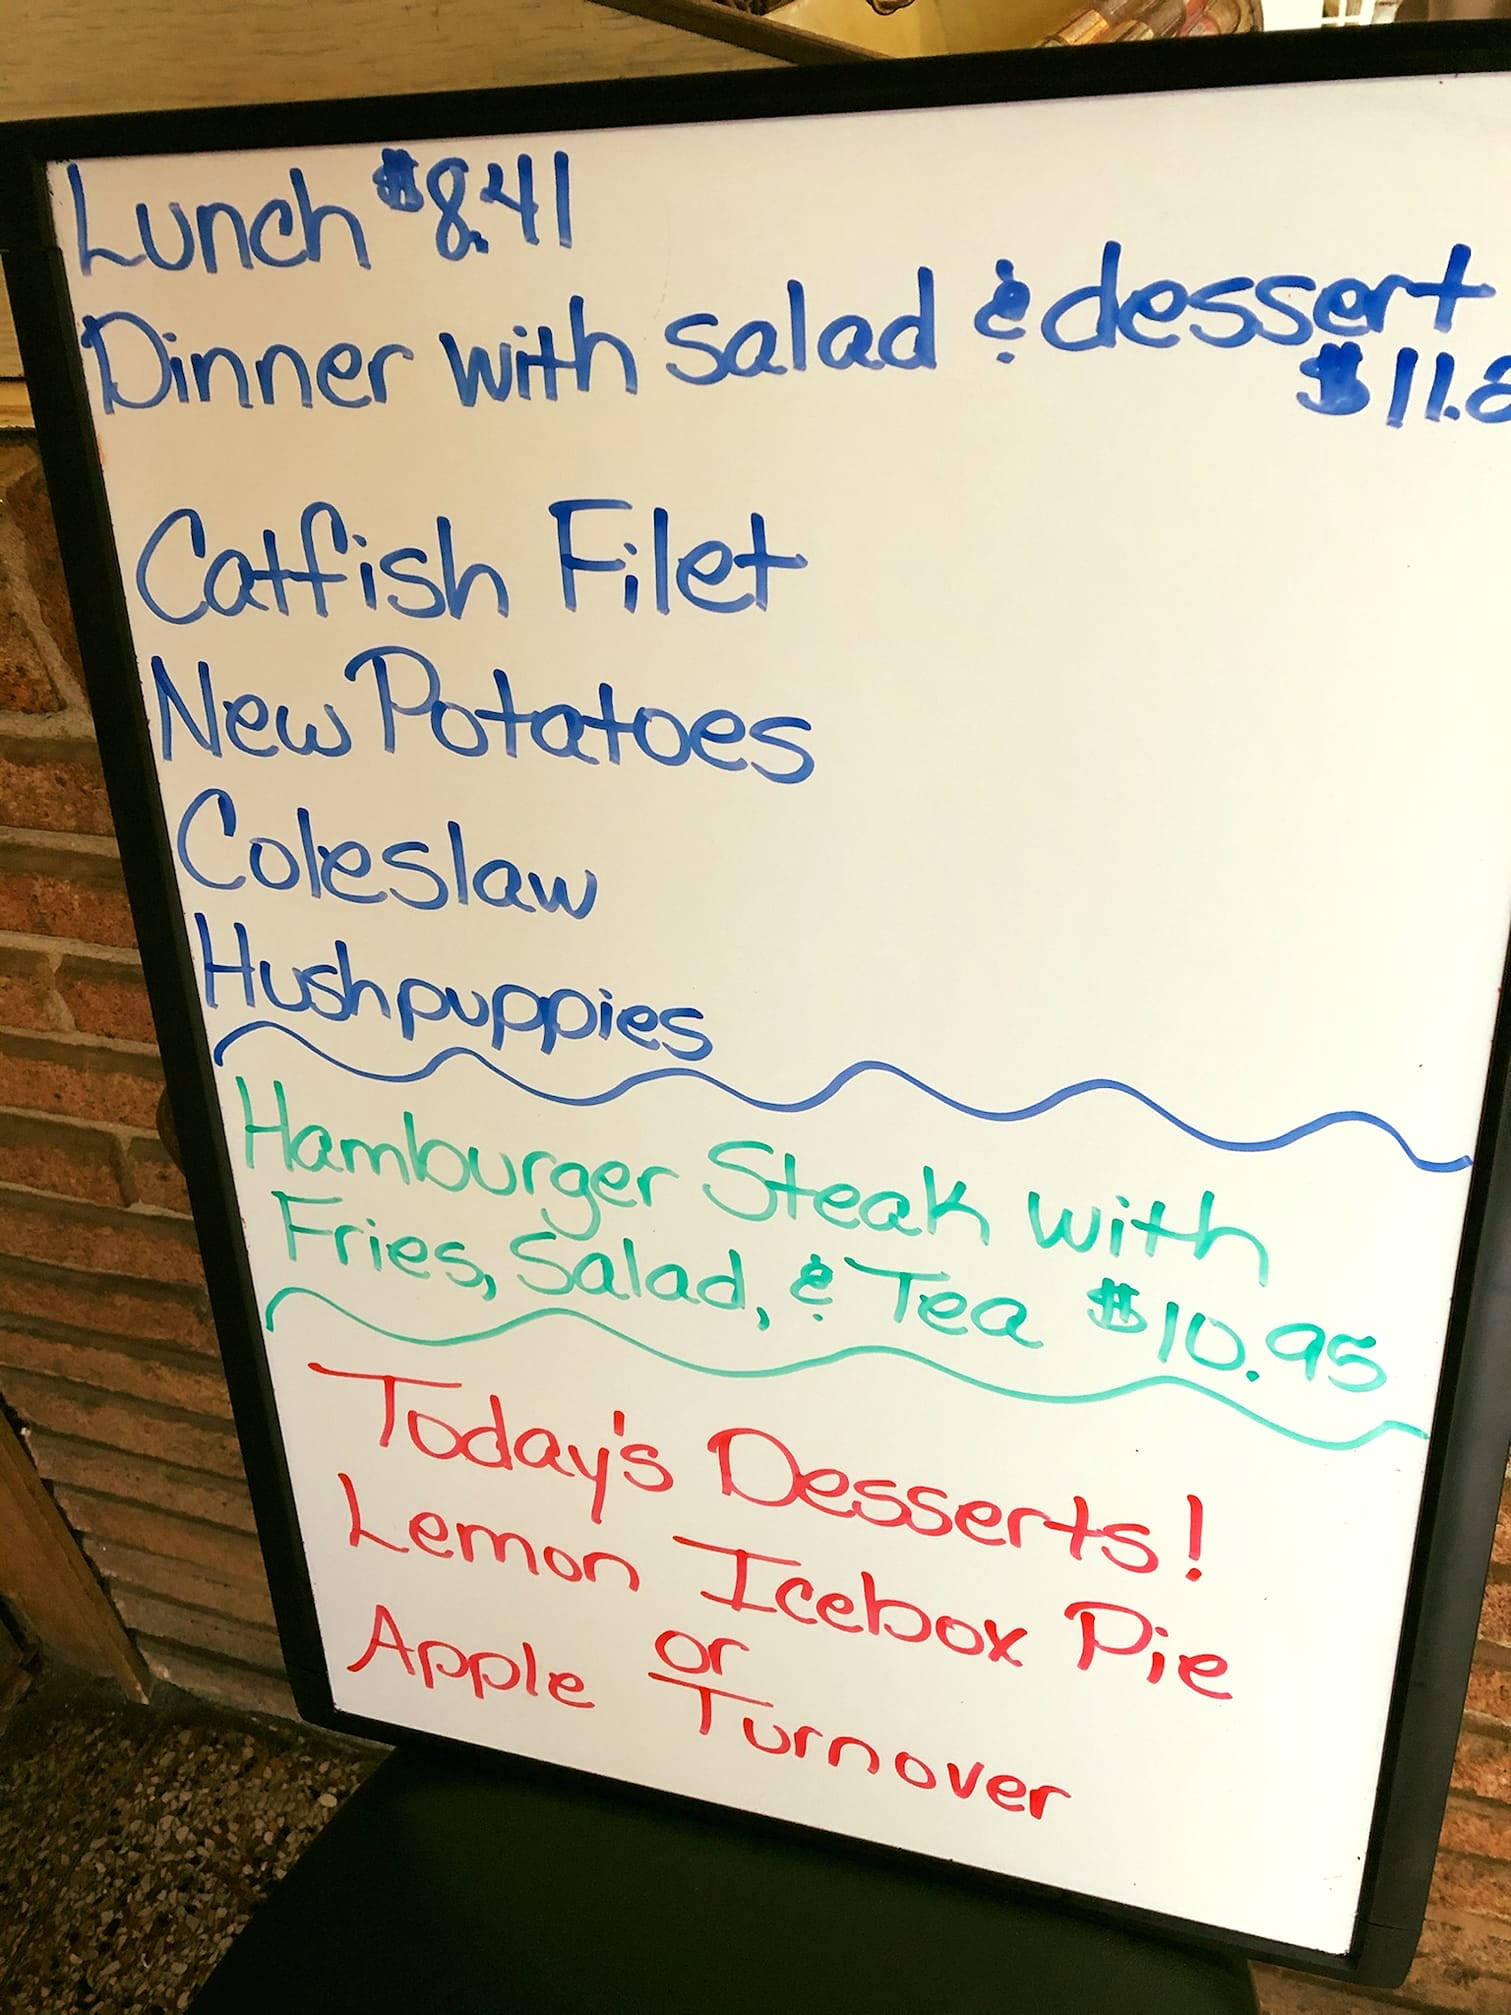 Lunch $8.41
Dinner with salad & dessert
$11.2
Catfish Filet
New Potatoes
Coleslaw
Hushpuppies
Hamburger Steak with
Fries, Salad, & Tea $10.95
Today's Desserts!
Lemon Icebox Pie
or
Apple Turnover